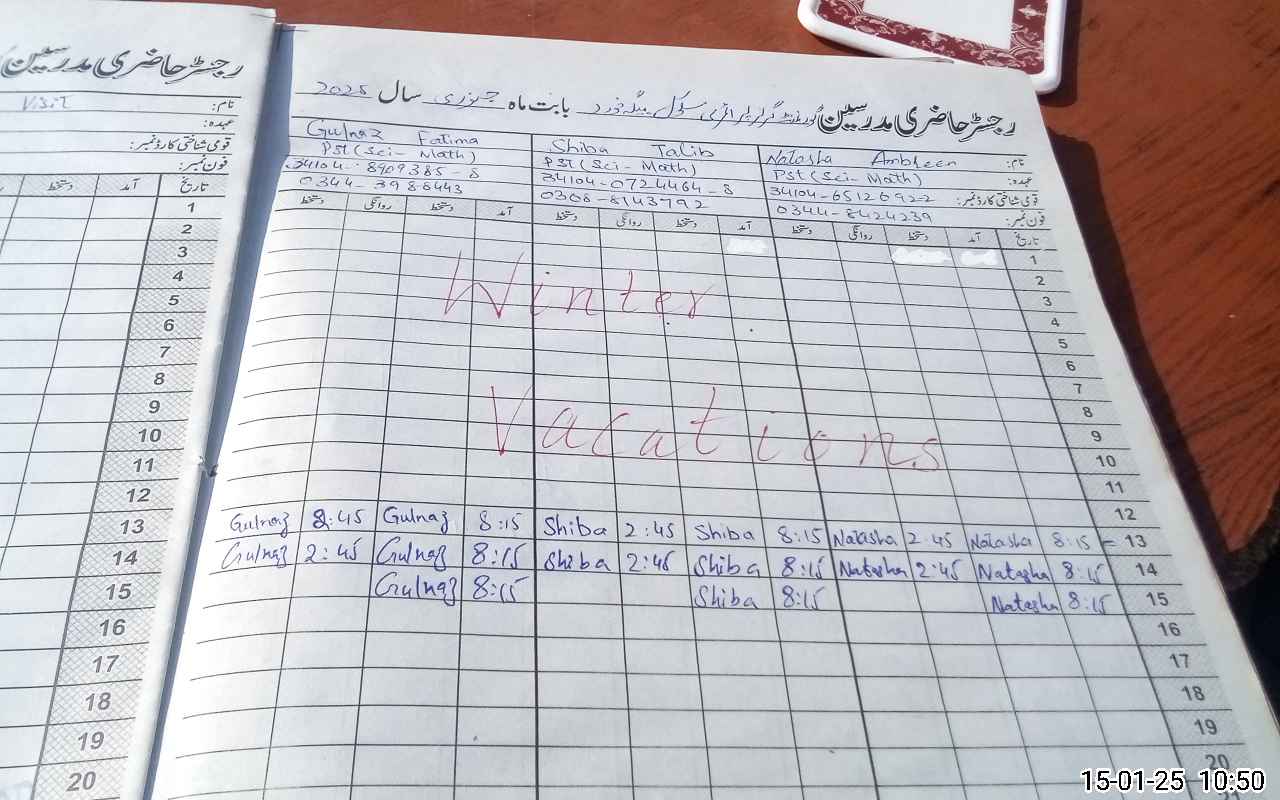 رجسٹر حاضری مدرسین
Visit
نام:
عہدہ:
قومی شناختی کارڈ نمبر:
فون نمبر:
تاریخ آمد دستخط
1
2
3
4
5
6
7
8
9
10
11
12
13
14
15
16
17
18
19
20
رجسٹر حاضری مدرسین گورنمنٹ گرلز پرائمری سکول خورد بابت ماہ جنوری سال 2025
نام: Natasha Ambheen Shiba Talib Gulnaz Fatima
عہدہ: Pst (Sci-Math) Pst (Sci-Math) Pst (Sci-Math)
قومی شناختی کارڈ نمبر: 34104-6512692-2 34104-0724464-8 34104-8909385-8
فون نمبر: 0344-8424239 0308-8143792 0344-3988443
تاریخ آمد دستخط روانگی دستخط آمد دستخط روانگی دستخط آمد دستخط روانگی دستخط
1
2
3
Winter
4
5
6
7
8
9
Vacations
10
11
12
Gulnaz 2:45 Gulnaz 8:15 Shiba 2:45 Shiba 8:15 Natasha 2:45 Natasha 8:15 13
Gulnaz 2:45 Gulnaz 8:15 Shiba 2:45 Shiba 8:15 Natasha 2:45 Natasha 8:15 14
Gulnaz 8:15 Shiba 8:15 Natasha 8:15 15
16
17
18
19
20
15-01-25 10:50